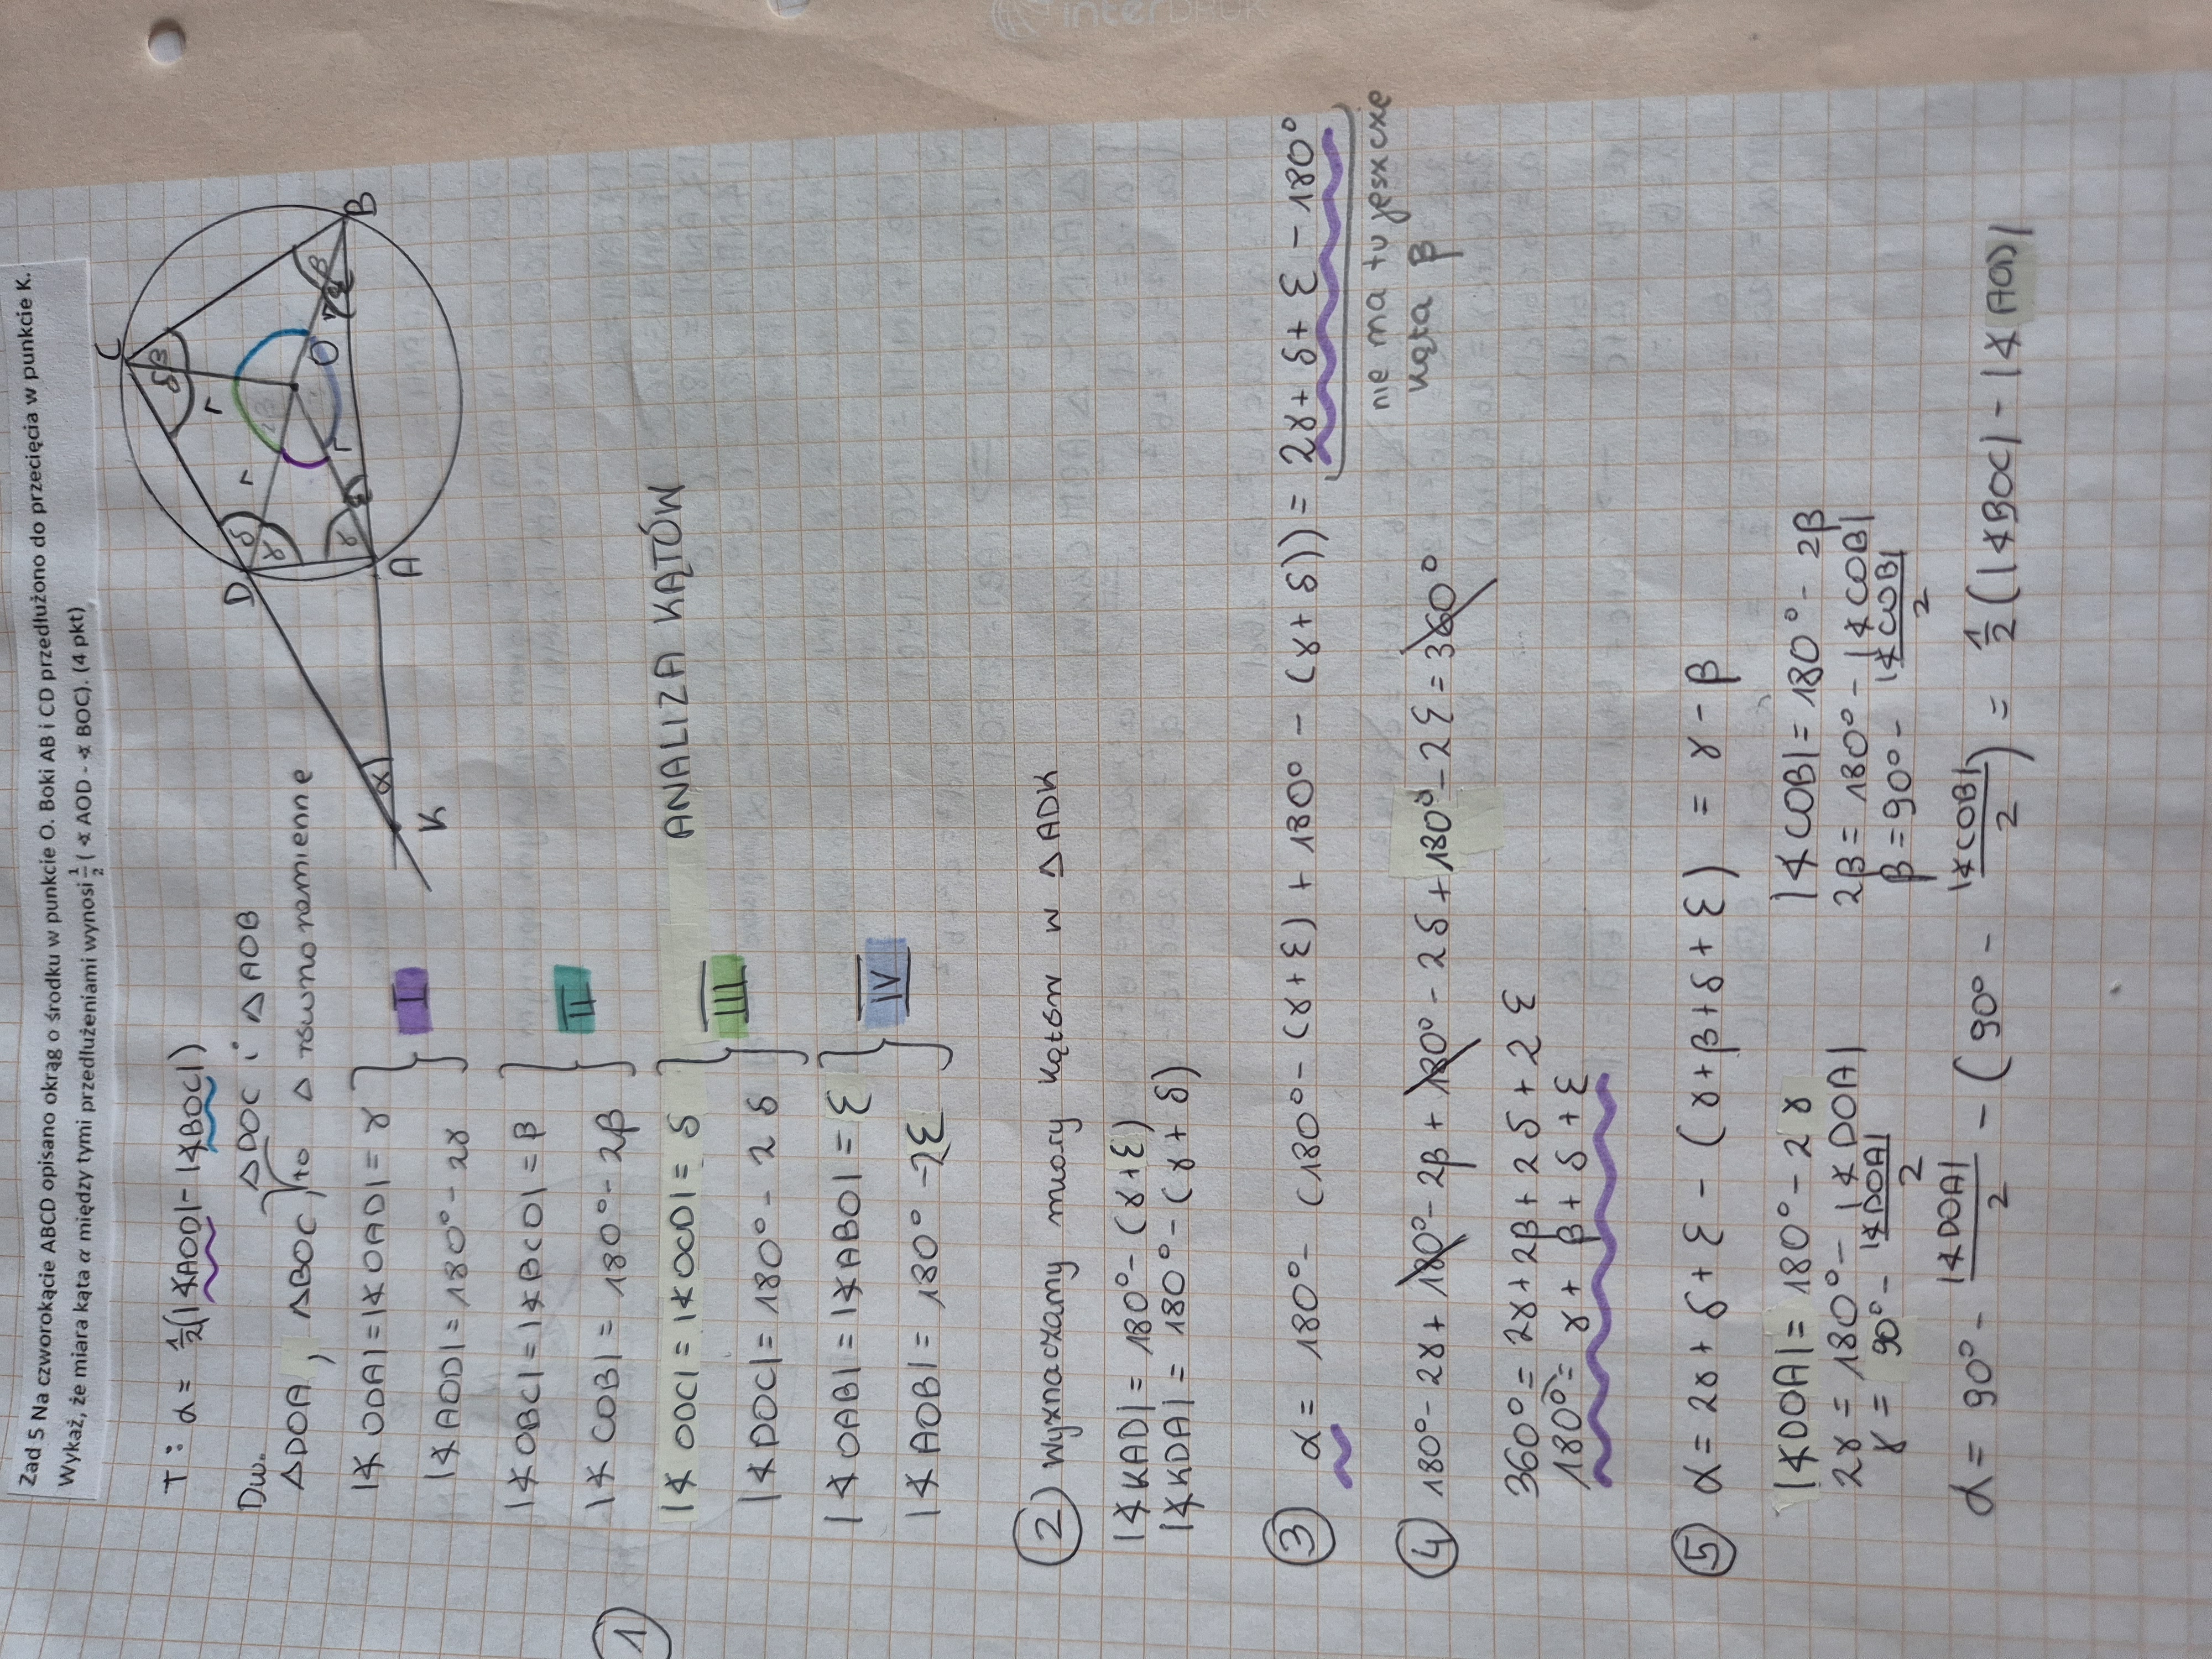 interDRUK
Zad 5 Na czworokącie ABCD opisano okrąg o środku w punkcie O. Boki AB i CD przedłużono do przecięcia w punkcie K.
Wykaż, że miara kąta α między tymi przedłużeniami wynosi 1/2 ( ∢ AOD - ∢ BOC). (4 pkt)
T: α = 1/2(|∢AOD| - |∢BOC|)
Dw.
△DOC i △AOB
△DOA, △BOC, to △ równoramienne
C
B
D
A
O
K
α
β
β
γ
γ
δ
δ
r
r
r
① |∢ODA| = |∢OAD| = γ
|∢AOD| = 180° - 2γ
I
|∢OBC| = |∢BCO| = β
|∢COB| = 180° - 2β
II
ANALIZA KĄTÓW
|∢ODC| = |∢OCD| = δ
|∢DOC| = 180° - 2δ
III
|∢OAB| = |∢ABO| = ε
|∢AOB| = 180° - 2ε
IV
② Wyznaczamy miary kątów w △ADK
|∢KAD| = 180° - (γ+ε)
|∢KDA| = 180° - (γ+δ)
③ α = 180° - (180° - (γ+ε) + 180° - (γ+δ)) = 2γ + δ + ε - 180°
nie ma tu jeszcze
kąta β
④ 180° - 2γ + 180° - 2β + 180° - 2δ + 180° - 2ε = 360°
360° = 2γ + 2β + 2δ + 2ε
180° = γ + β + δ + ε
⑤ α = 2γ + δ + ε - (γ + β + δ + ε) = γ - β
|∢DOA| = 180° - 2γ
|∢COB| = 180° - 2β
2γ = 180° - |∢DOA|
2β = 180° - |∢COB|
γ = 90° - |∢DOA|/2
β = 90° - |∢COB|/2
α = 90° - |∢DOA|/2 - (90° - |∢COB|/2) = 1/2(|∢BOC| - |∢AOD|)